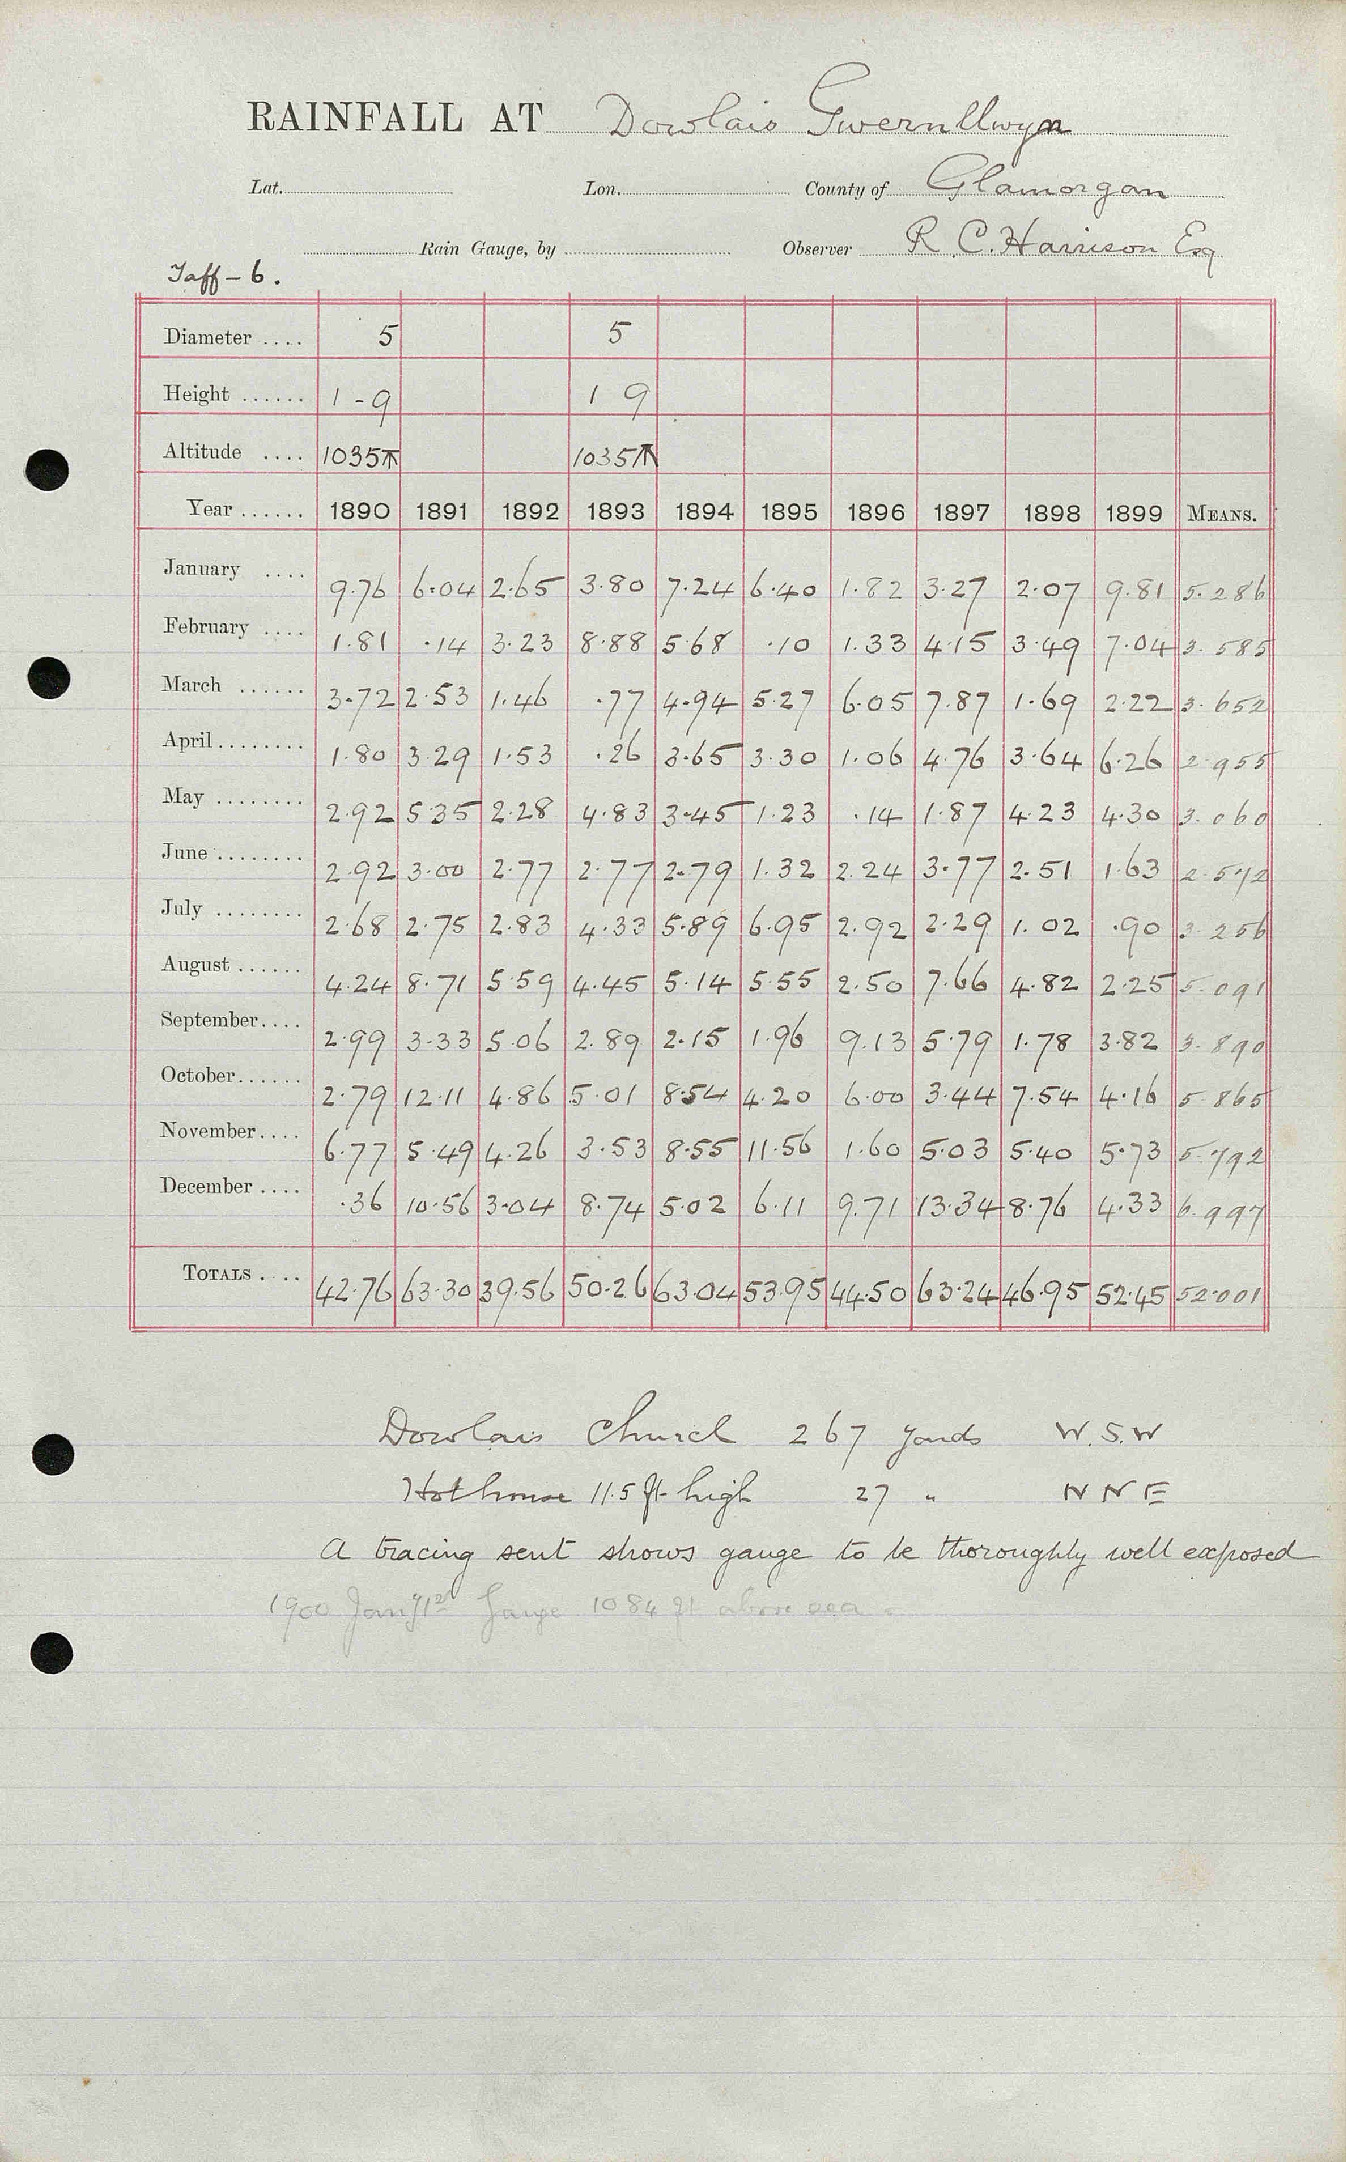 RAINFALL AT Dowlais Gwernllwyn
Lat. Lon. County of Glamorgan
Rain Gauge, by Observer R. C. Harrison Esq
Taff - 6.
Diameter .... 5 5
Height ...... 1 - 9 1 9
Altitude .... 1035 1035
Year ...... 1890 1891 1892 1893 1894 1895 1896 1897 1898 1899 MEANS.
January .... 9.76 6.04 2.65 3.80 7.24 6.40 1.82 3.27 2.07 9.81 5.286
February .... 1.81 .14 3.23 8.88 5.68 .10 1.33 4.15 3.49 7.04 3.585
March ...... 3.72 2.53 1.46 .77 4.94 5.27 6.05 7.87 1.69 2.22 3.652
April ........ 1.80 3.29 1.53 .26 3.65 3.30 1.06 4.76 3.64 6.26 2.955
May ........ 2.92 5.35 2.28 4.83 3.45 1.23 .14 1.87 4.23 4.30 3.060
June ........ 2.92 3.00 2.77 2.77 2.79 1.32 2.24 3.77 2.51 1.63 2.572
July ........ 2.68 2.75 2.83 4.33 5.89 6.95 2.92 2.29 1.02 .90 3.256
August ...... 4.24 8.71 5.59 4.45 5.14 5.55 2.50 7.66 4.82 2.25 5.091
September.... 2.99 3.33 5.06 2.89 2.15 1.96 9.13 5.79 1.78 3.82 3.890
October...... 2.79 12.11 4.86 5.01 8.54 4.20 6.00 3.44 7.54 4.16 5.865
November.... 6.77 5.49 4.26 3.53 8.55 11.56 1.60 5.03 5.40 5.73 5.792
December .... .36 10.56 3.04 8.74 5.02 6.11 9.71 13.34 8.76 4.33 6.997
TOTALS .... 42.76 63.30 39.56 50.26 63.04 53.95 44.50 63.24 46.95 52.45 52.001
Dowlais Church 267 yards W.S.W
Hothouse 11.5 ft. high 27 " N N E
A tracing sent shows gauge to be thoroughly well exposed
1900 Jany 1st Gauge 1084 ft above sea.